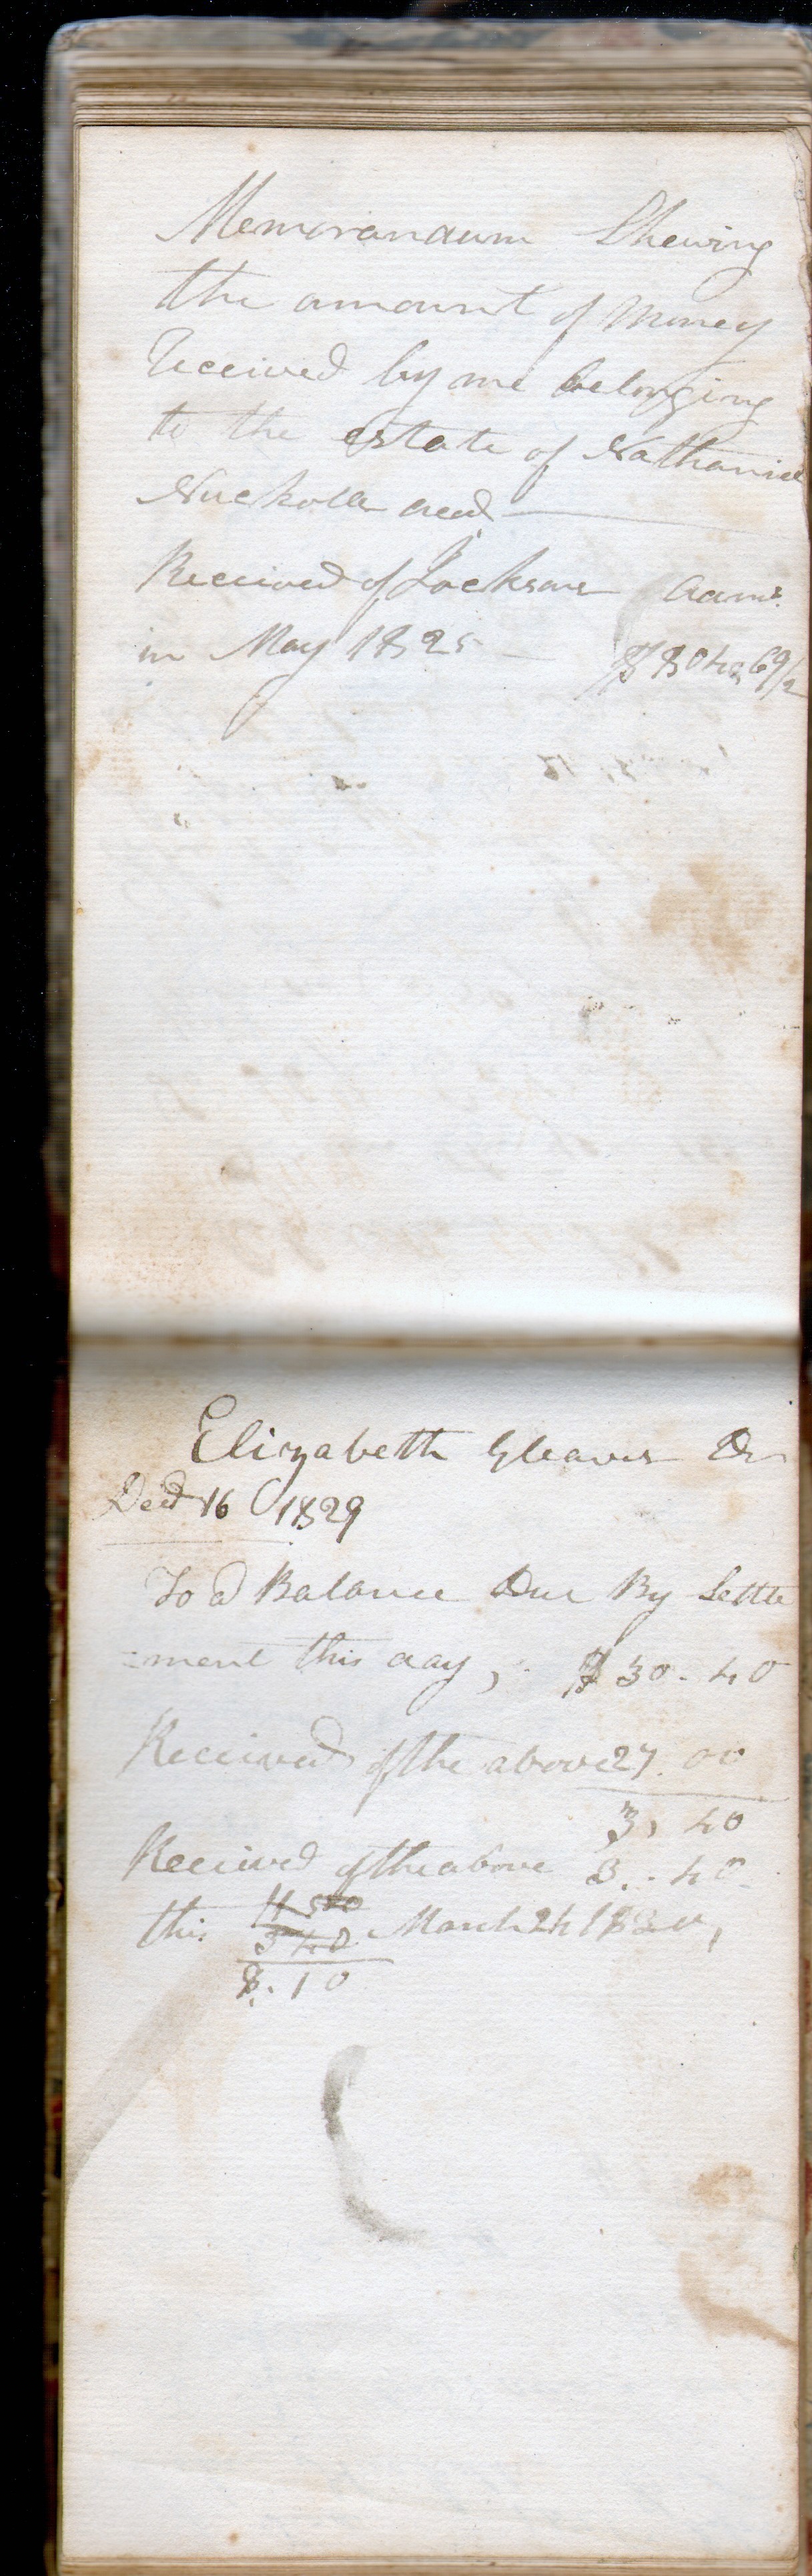 Memorandum Shewing
the amount of Money
Received by me belonging
to the estate of Nathaniel
Nuckolls decd
Received of Jackson Admr
in May 1825
Elizabeth Gleaves Dr
Decr 16 1829
To a Balance Due By Settle
=ment this day, $30-40
Received of the above 27.00
3, 40
Received of the above 3.-40
this March 24 1830,
11 500
3 40
8.10